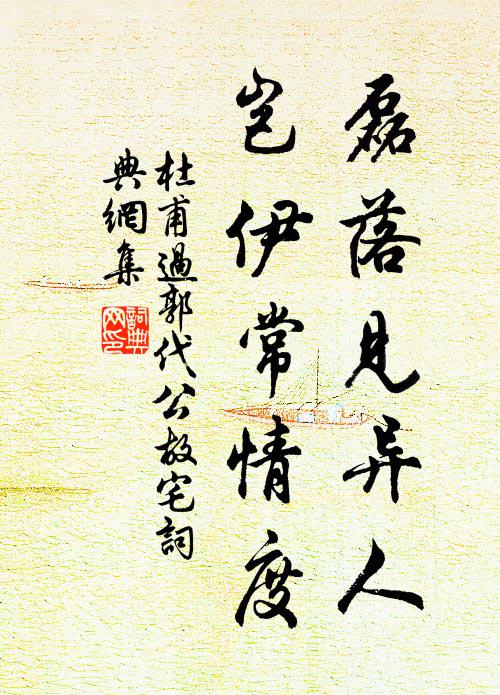 磊落見异人
豈伊常情度
杜甫過郭代公故宅詞
典網集
詞典
网印